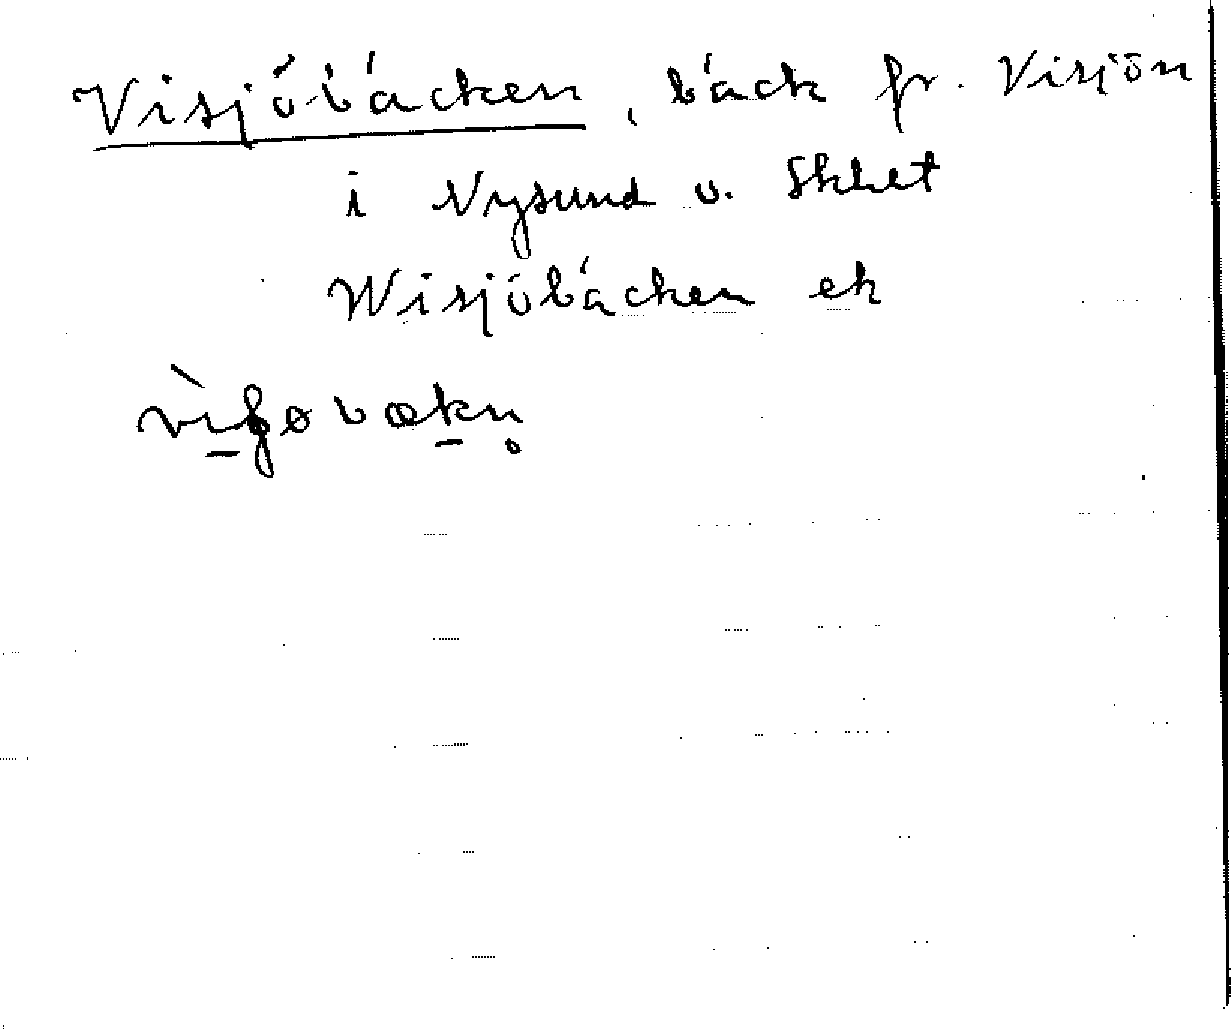 Visjöbäcken, bäck fr. Visjön
i Nysund v. Skhet
Wisjöbäcken ek